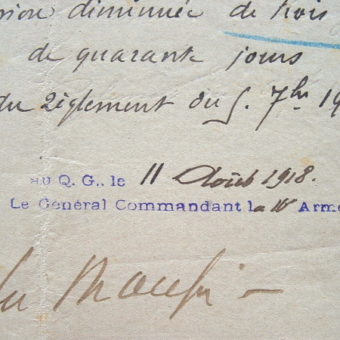 diminuée de trois
de quarante jours
du règlement du 5. 7bre 19
au Q. G., le 11 Août 1918.
Le Général Commandant la Armé